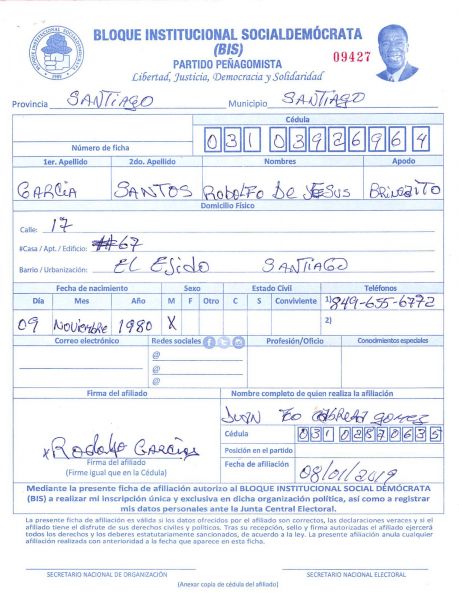 BLOQUE INSTITUCIONAL SOCIALDEMÓCRATA
(BIS)
PARTIDO PEÑAGOMISTA
09427
Libertad, Justicia, Democracia y Solidaridad
Provincia SANTIAGO Municipio SANTIAGO
Cédula
Número de ficha 031 0392696 4
1er. Apellido 2do. Apellido Nombres Apodo
GARCIA SANTOS RODOLFO DE JESUS
Domicilio Físico
Calle: 17
#Casa / Apt. / Edificio: #67
Barrio / Urbanización: EL Ejido SANTIAGO
Fecha de nacimiento Sexo Estado Civil Teléfonos
Día Mes Año M F Otro C S Conviviente 1) 849-655-6772
09 Noviembre 1980 X 2)
Correo electrónico Redes sociales Profesión/Oficio Conocimientos especiales
@
@
@
Firma del afiliado Nombre completo de quien realiza la afiliación
JUAN
Cédula 031 0287063 5
Posición en el partido
x Rodolfo Garcias
Firma del afiliado
(Firme igual que en la Cédula)
Fecha de afiliación 08/01/2019
Mediante la presente ficha de afiliación autorizo al BLOQUE INSTITUCIONAL SOCIAL DEMÓCRATA
(BIS) a realizar mi inscripción única y exclusiva en dicha organización política, así como a registrar
mis datos personales ante la Junta Central Electoral.
La presente ficha de afiliación es válida si los datos ofrecidos por el afiliado son correctos, las declaraciones veraces y si el
afiliado tiene el disfrute de sus derechos civiles y políticos. Tras su recepción, sello y firma autorizadas el afiliado ejercerá
todos los derechos y los deberes estatutariamente sancionados, de acuerdo a la ley. La presente afiliación anula cualquier
afiliación realizada con anterioridad a la fecha que aparece en esta ficha.
SECRETARIO NACIONAL DE ORGANIZACIÓN SECRETARIO NACIONAL ELECTORAL
(Anexar copia de cédula del afiliado)